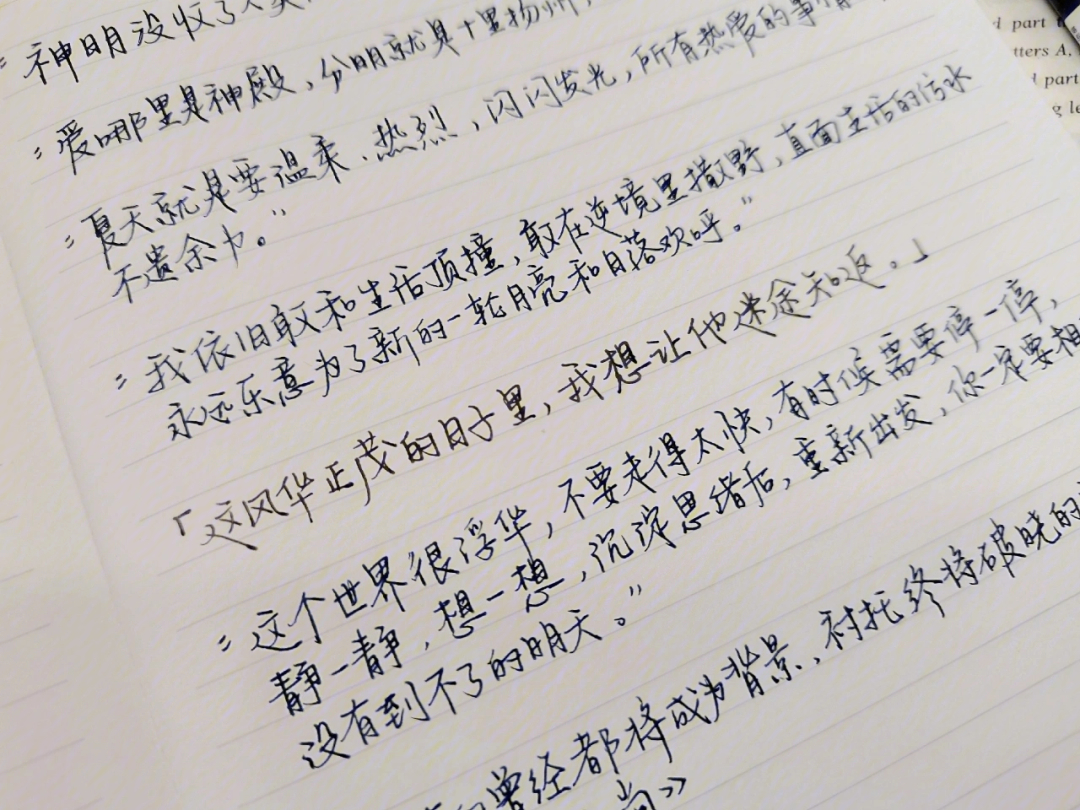 "神明没收了
"爱哪里是神殿,分明就是十里扬州,
"夏天就是要温柔、热烈,闪闪发光,所有热爱的事情
不遗余力。"
"我依旧敢和生活顶撞,敢在逆境里撒野,直面生活的污水
永远乐意为了新的一轮月亮和日落欢呼。"
「这风华正茂的日子里,我想让他迷途知返。」
"这个世界很浮华,不要走得太快,有时候需要停一停,
静一静,想一想,沉淀思绪后,重新出发,你一定要相
没有到不了的明天。"
曾经都将成为背景,衬托终将破晓的
尚》
d part
tters A,
d part
g le